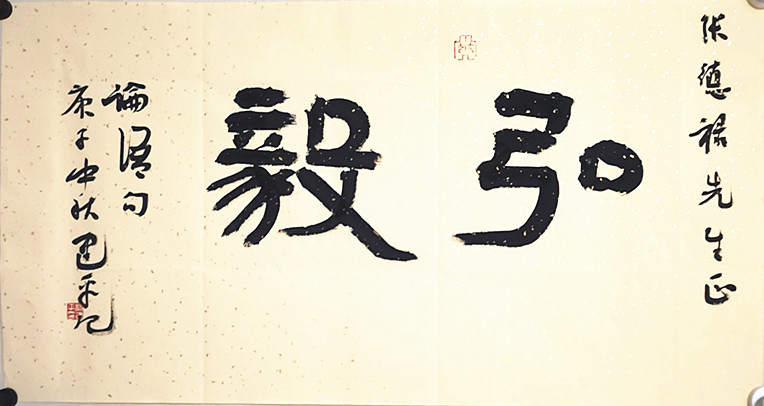 张德禄先生正
弘毅
論語句
庚子中秋